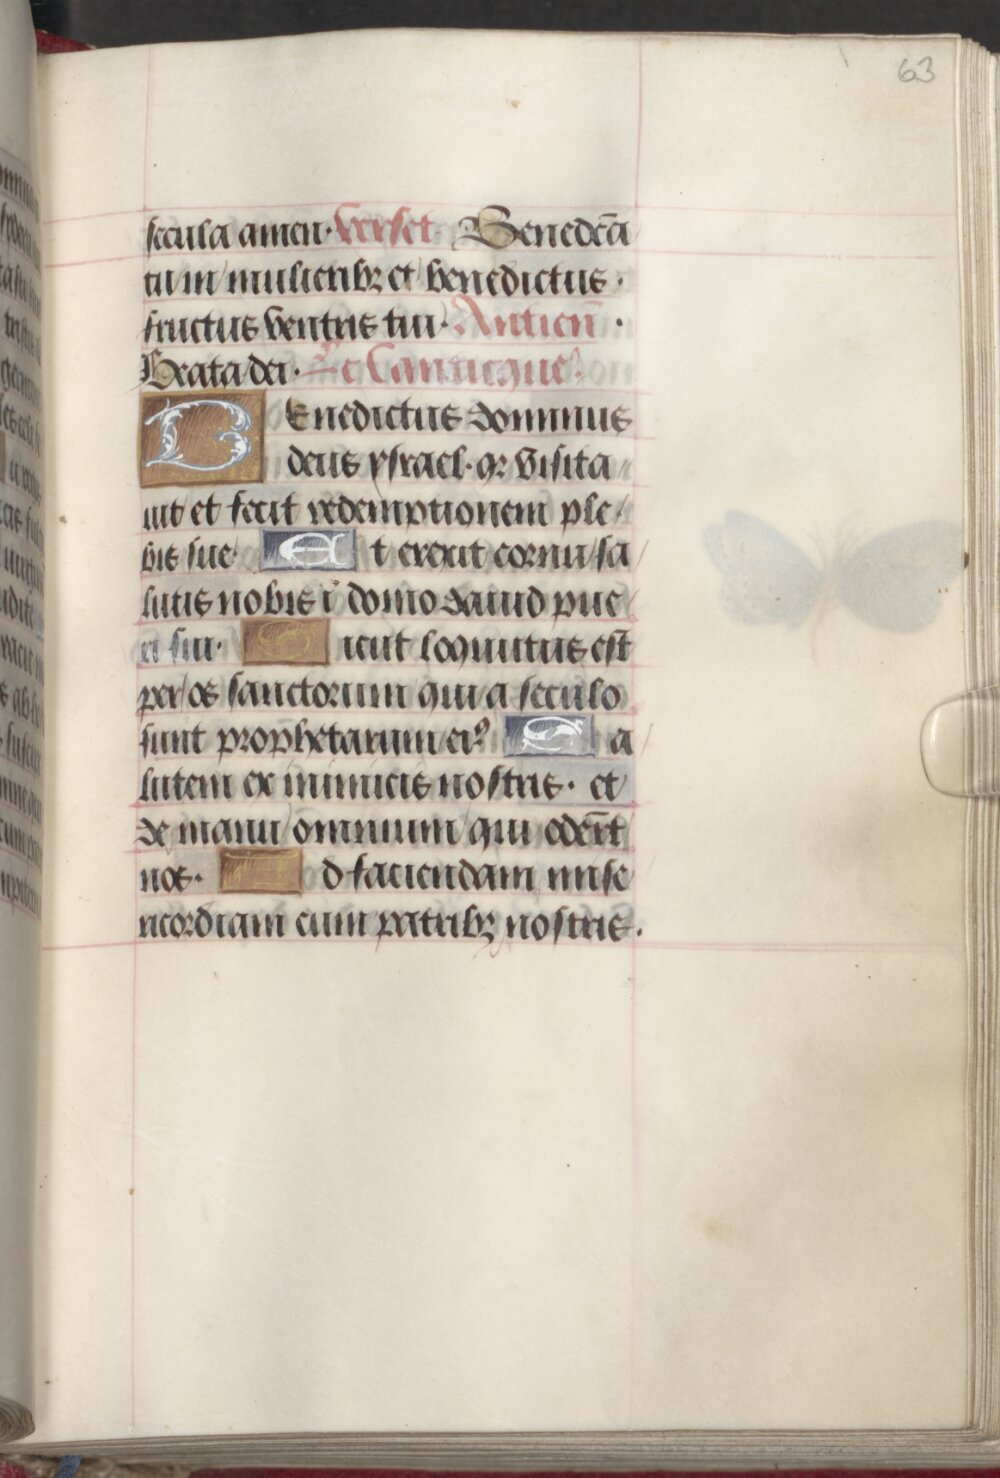 63
secula amen · Verset · Benedc̄a
tu in mulieribꝫ et benedictus ·
fructus ventris tui · Antien̄ ·
Beata dei · Le Canticque ·
BEnedictus dominus
deus ysrael · qꝛ visita
uit et fecit redemptionem ple
bis sue · Et erexit cornu sa
lutis nobis ī domo dauid pue
ri sui · Sicut loquutus est
per os sanctorum qui a seculo
sunt prophetarum eiꝰ Sa
lutem ex inimicis nostris · et
de manu omnium qui oder̄t
nos · Ad faciendam mise
ricordiam cum patribꝫ nostris ·